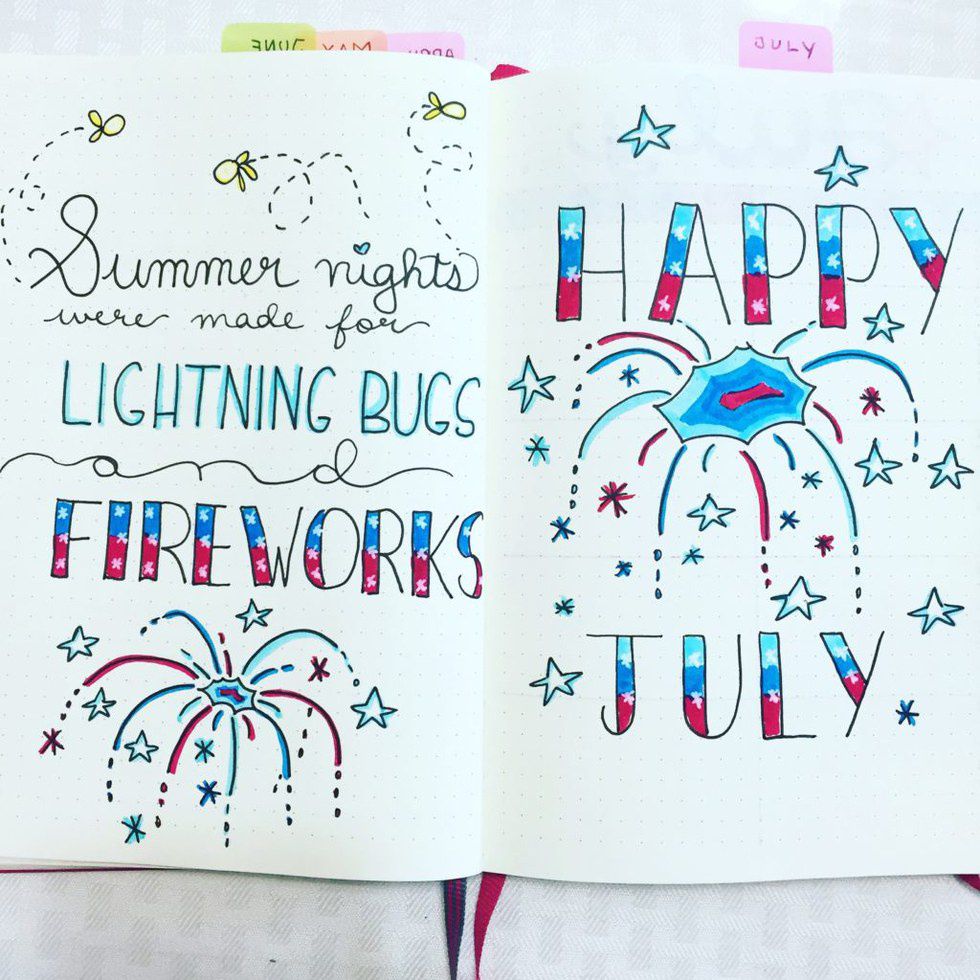 JUNE
MAY
APRIL
JULY
Summer nights
were made for
LIGHTNING BUGS
and
FIREWORKS
HAPPY
JULY